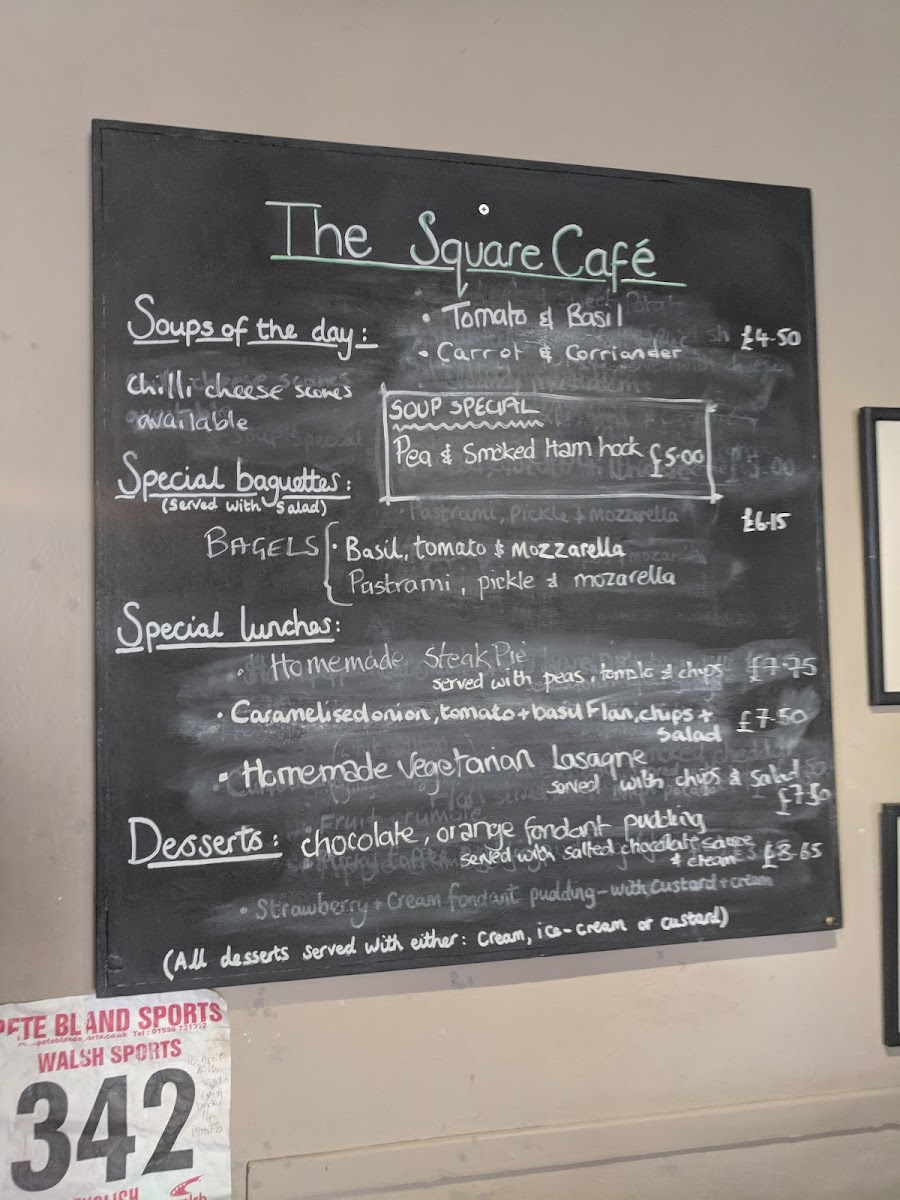 The Square Café
Soups of the day:
• Tomato & Basil
• Carrot & Corriander
£4.50
Chilli cheese scones
available
SOUP SPECIAL
Pea & Smoked Ham hock £5.00
Special baguettes:
(Served with Salad)
Pastrami, pickle & Mozzarella
£6.15
BAGELS
• Basil, tomato & Mozzarella
Pastrami, pickle & mozarella
Special lunches:
• Homemade Steak Pie
served with peas, & chips £7.75
• Caramelised onion, tomato + basil Flan, chips +
Salad £7.50
• Homemade vegetarian Lasagne
served with chips & Salad
£7.50
Desserts: chocolate, orange fondant pudding
served with salted chocolate sauce
& cream £3.65
• Strawberry + Cream fondant pudding - with custard + cream
(All desserts served with either: cream, ice-cream or custard)
PETE BLAND SPORTS
WALSH SPORTS
342
ENGLISH